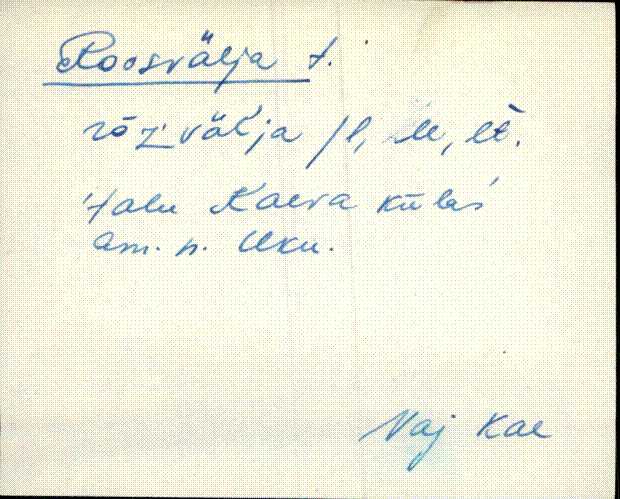 Roosvälja t.
rōz̀väĺja /l, lle, lt.
Talu Kaera külas
Am. n. Uku.
Vaj Kae